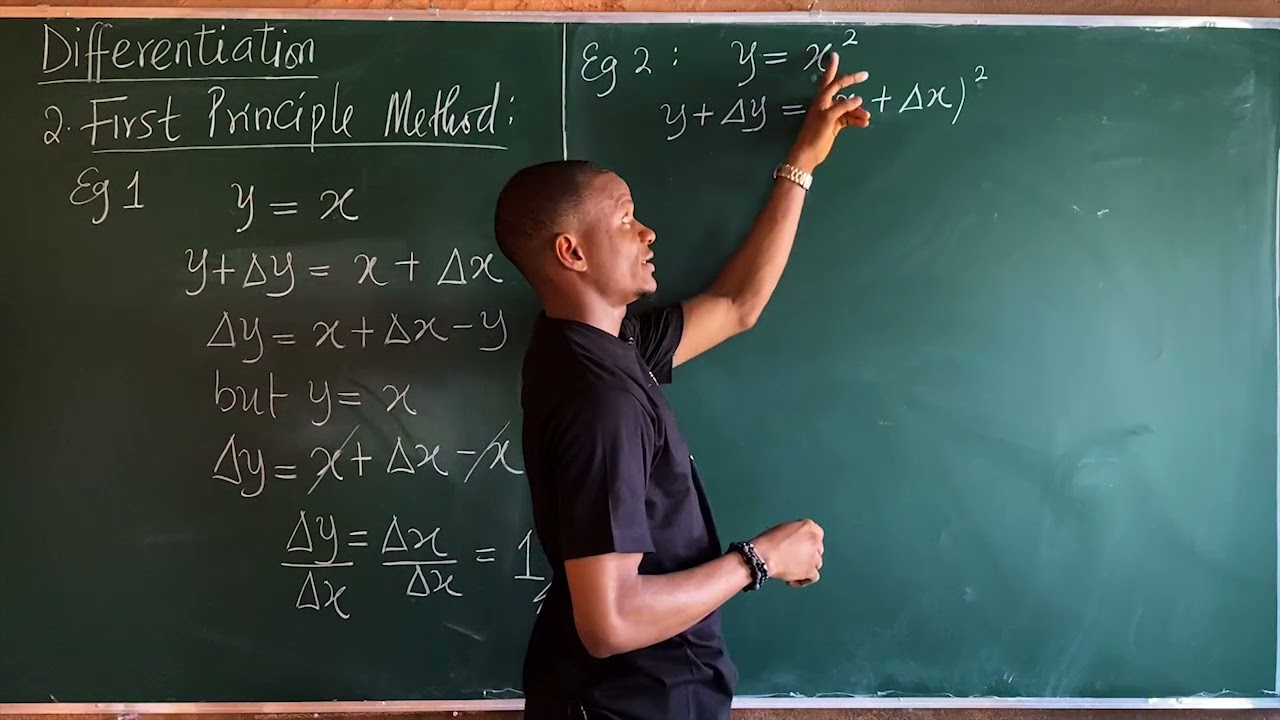 Differentiation
2. First Principle Method:
Eg 1 y = x
y + Δy = x + Δx
Δy = x + Δx - y
but y = x
Δy = x + Δx - x
Δy/Δx = Δx/Δx = 1
Eg 2 : y = x²
y + Δy = x + Δx)²